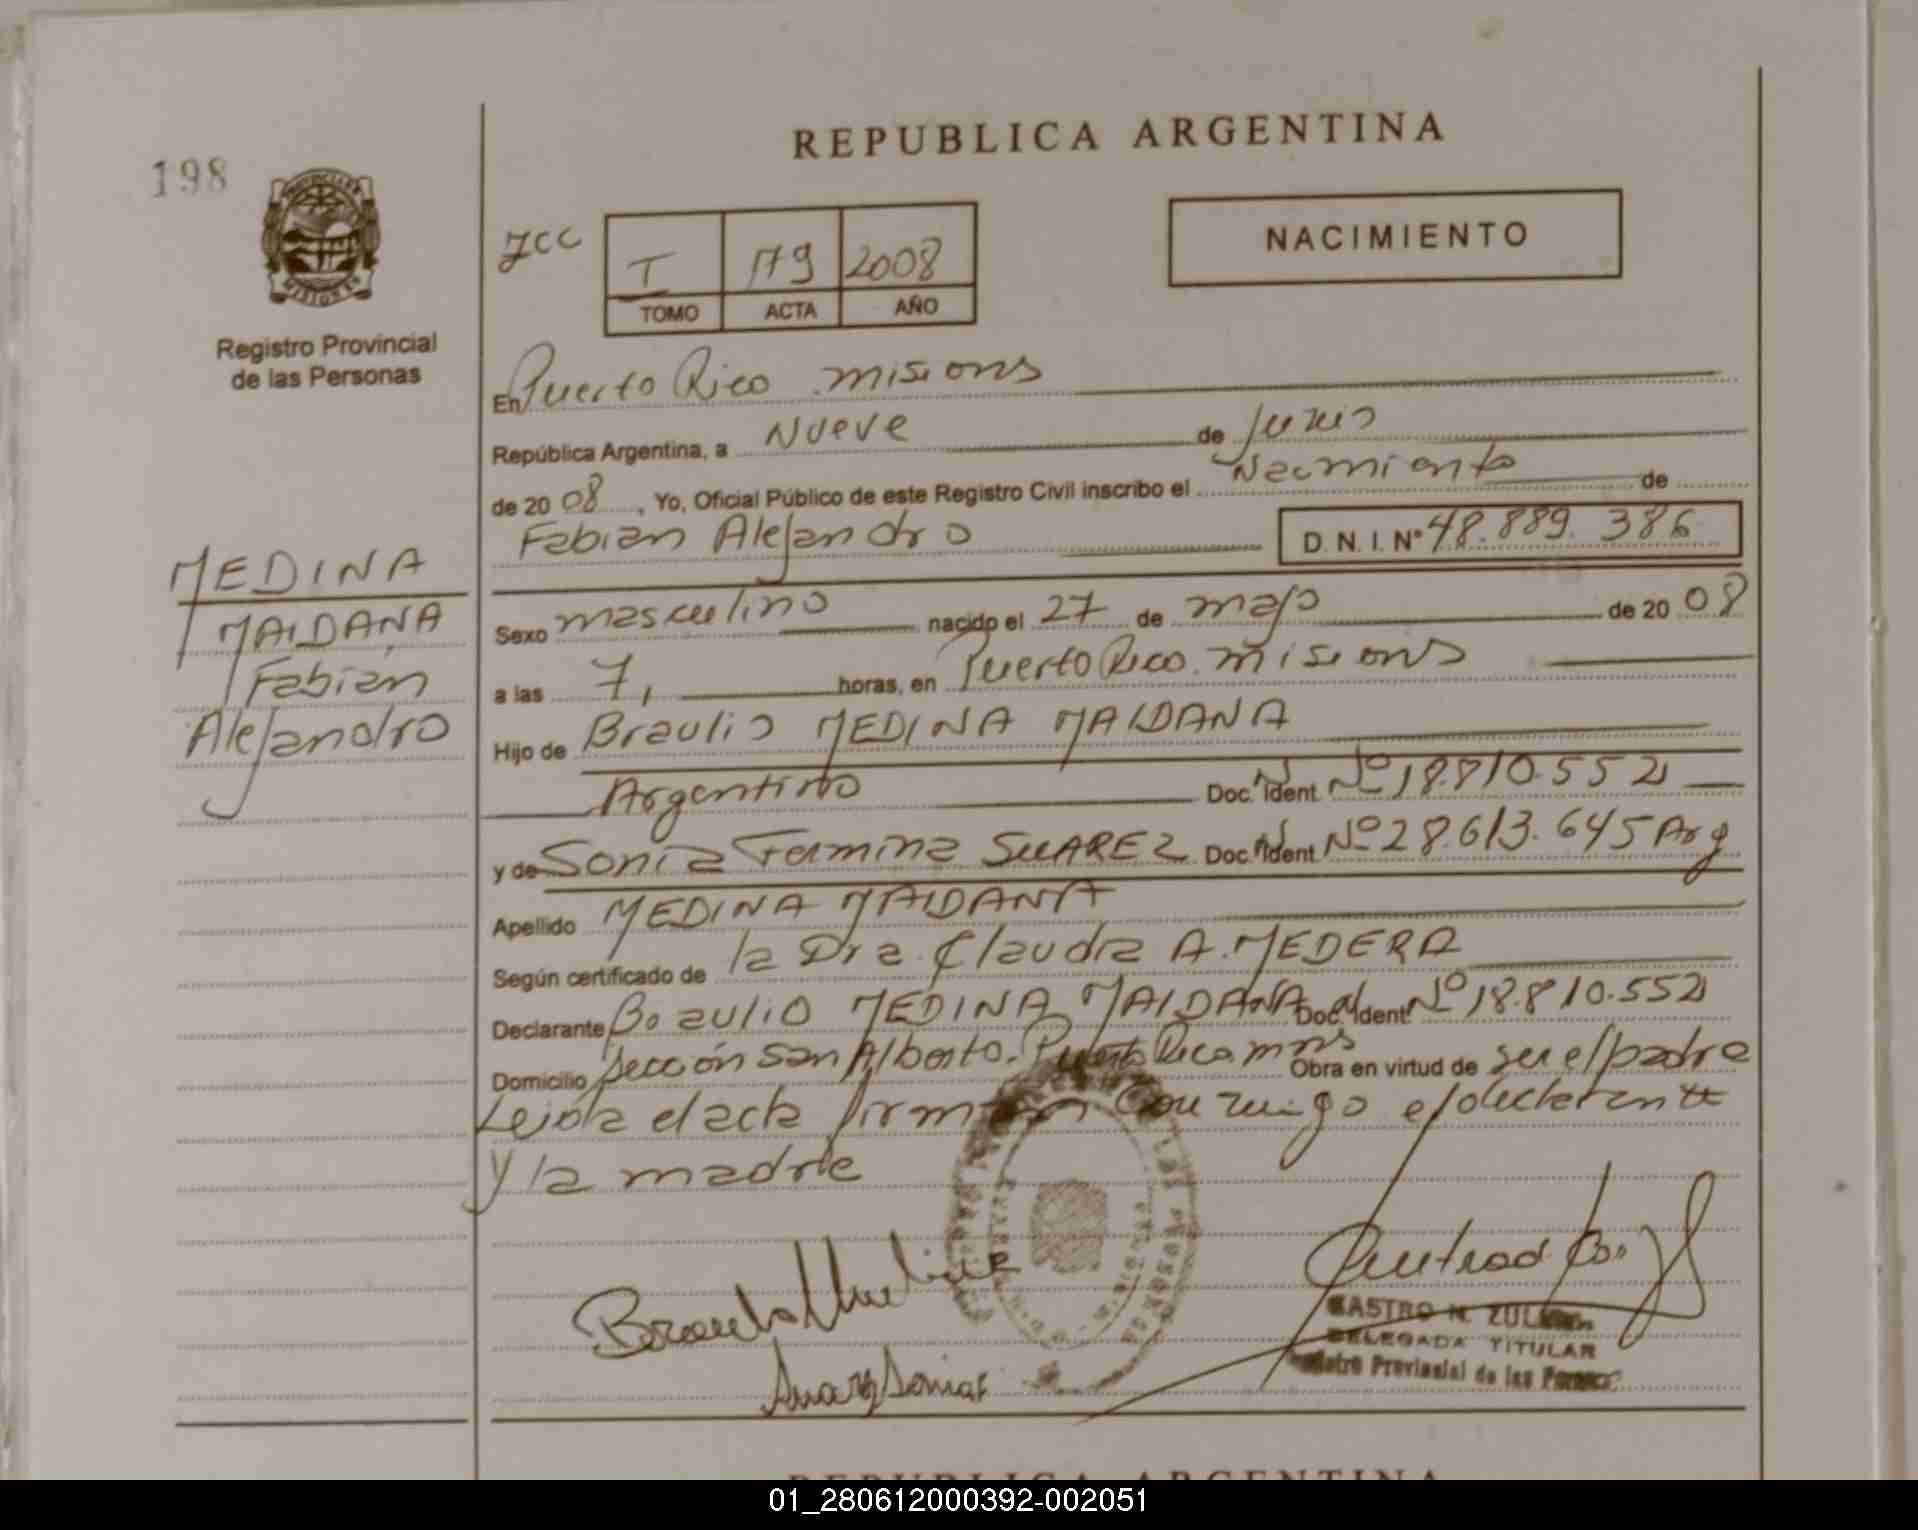 REPUBLICA ARGENTINA
198
NACIMIENTO
I 179 2008
TOMO ACTA AÑO
Registro Provincial
de las Personas
En Puerto Rico. misions
República Argentina, a Nueve de Junio
de 20 08, Yo, Oficial Público de este Registro Civil inscribo el Nacimiento de
Fabian Alejandro D. N. I. Nº 48.889.386
MEDINA
MAIDANA
Fabián
Alejandro
Sexo masculino nacido el 27 de mayo de 20 08
a las 7, horas, en Puerto Rico. misions
Hijo de Braulio MEDINA MAIDANA
Argentino Doc. Ident. Nº 18.810.552
y de Sonia SUAREZ Doc. Ident Nº 28.613.645 Arg
Apellido MEDINA MAIDANA
Según certificado de la Dra. Claudia A. MEDERA
Declarante Braulio MEDINA MAIDANA Doc. Ident Nº 18.810.552
Domicilio Sección San Alberto. Puerto Rico mns Obra en virtud de ser el padre
Leida el acta firman conmigo el declarante
y la madre
Suarez Sonia
CASTRO N.
DELEGADA TITULAR
Registro Provincial de las Personas
REPUBLICA ARGENTINA
01_280612000392-002051